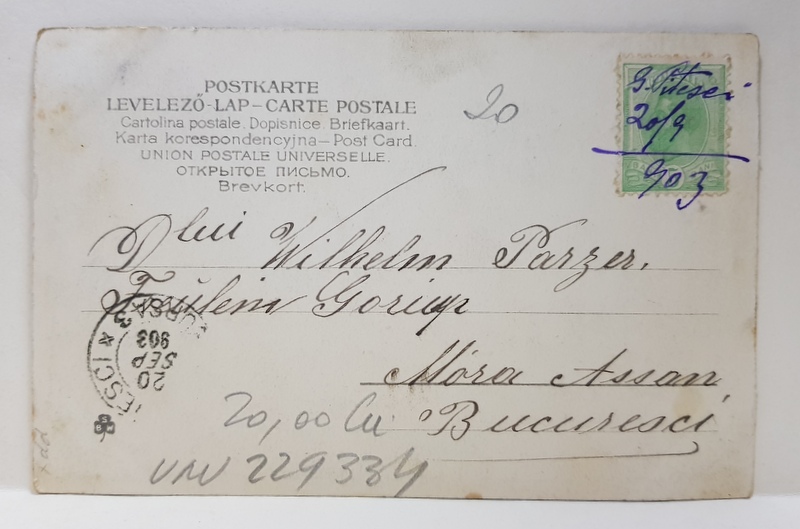 POSTKARTE
LEVELEZŐ-LAP-CARTE POSTALE
Cartolina postale. Dopisnice. Briefkaart.
Karta korespondencyjna-Post Card.
UNION POSTALE UNIVERSELLE.
ОТКРЫТОЕ ПИСЬМО.
Brevkort.
20
G. Pitesci
20/9
903
Dlui Wilhelm Parzer.
Fräulein
Móra Assan
Bucuresci
20
SEP
903
ESCI
20,00 lei
229334